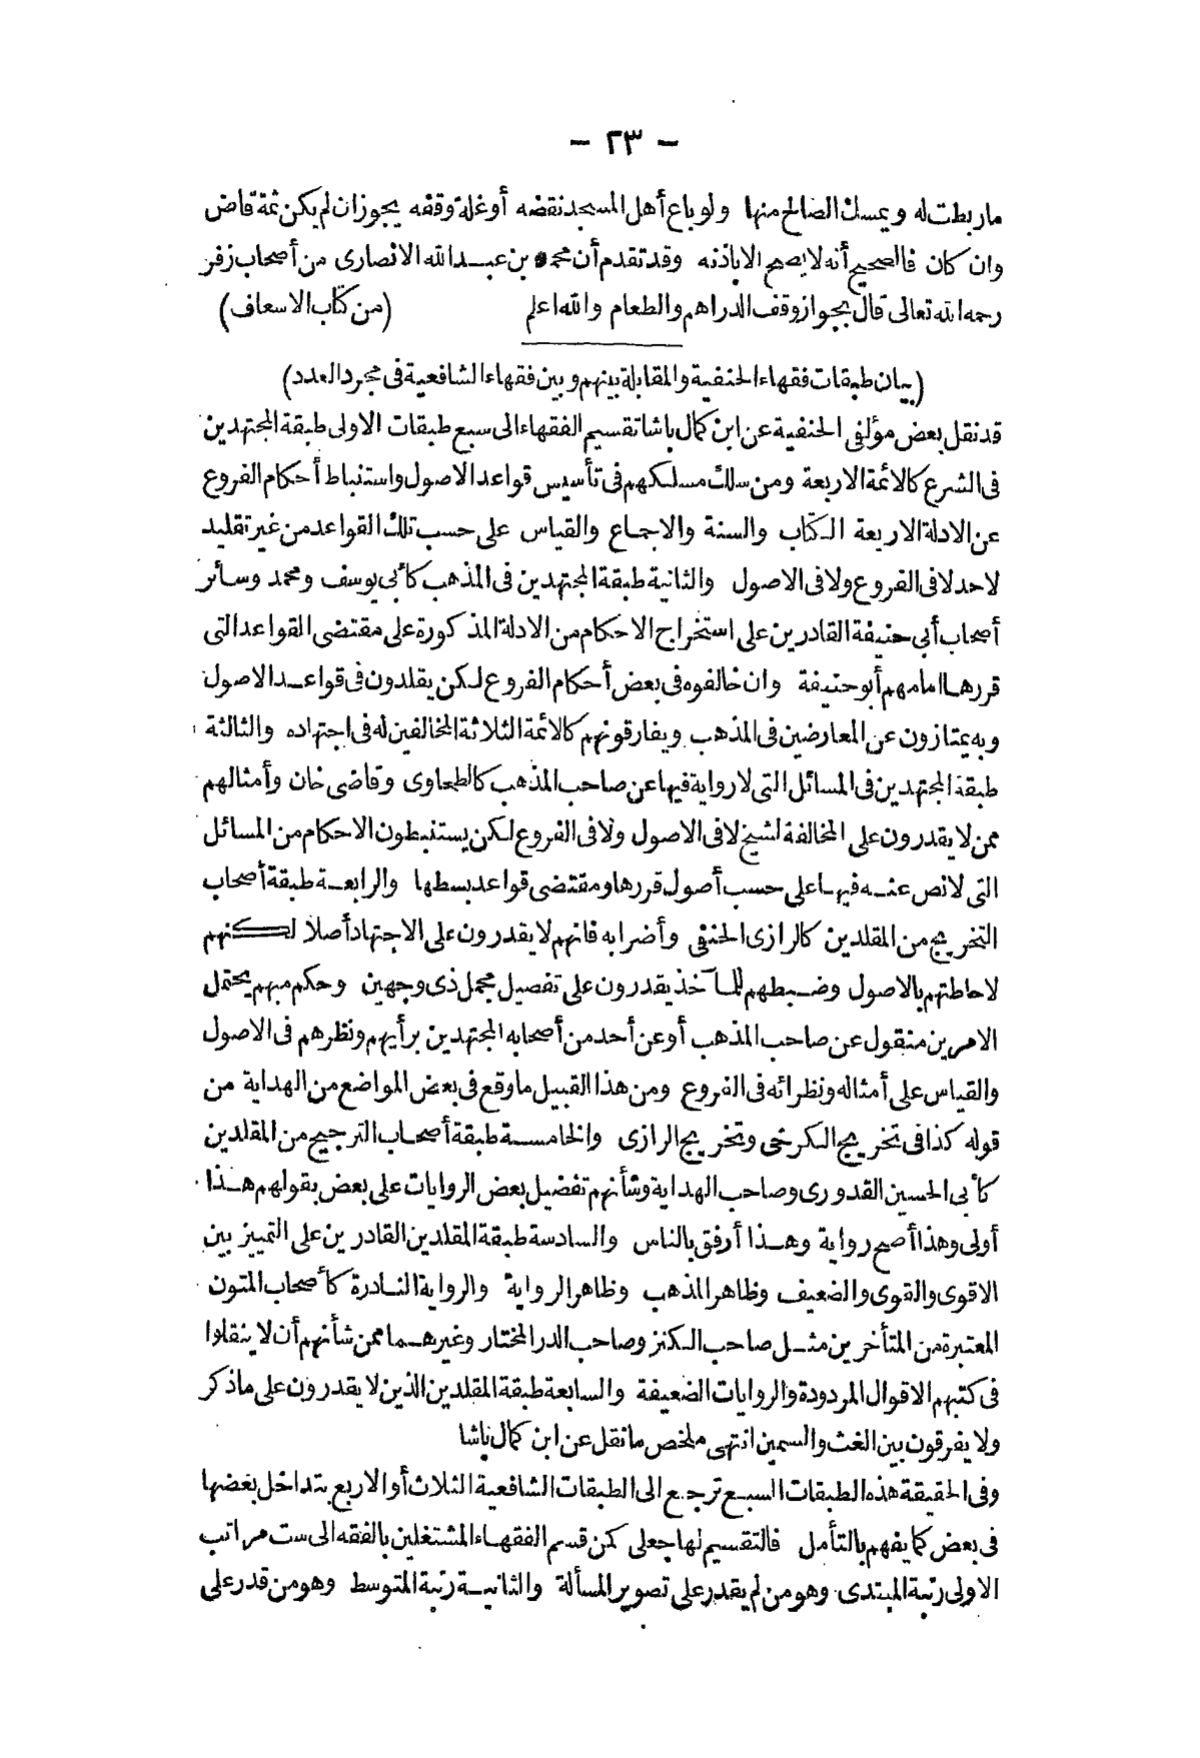 — ٢٣ —
ما ربطت له ويمسك الصالح منها ولو باع أهل المسجد نقضه أو غلة وقفه يجوز ان لم يكن ثمة قاض
وان كان فالصحيح أنه لا يصح الا باذنه وقد تقدم أن محمد بن عبد الله الانصارى من أصحاب زفر
رحمه الله تعالى قال بجواز وقف الدراهم والطعام والله اعلم (من كتاب الاسعاف)
(بيان طبقات فقهاء الحنفية والمقابلة بينهم وبين فقهاء الشافعية فى مجرد العدد)
قد نقل بعض مؤلفى الحنفية عن ابن كمال باشا تقسيم الفقهاء الى سبع طبقات الاولى طبقة المجتهدين
فى الشرع كالائمة الاربعة ومن سلك مسلكهم فى تأسيس قواعد الاصول واستنباط أحكام الفروع
عن الادلة الاربعة الكتاب والسنة والاجماع والقياس على حسب تلك القواعد من غير تقليد
لاحد لا فى الفروع ولا فى الاصول والثانية طبقة المجتهدين فى المذهب كأبى يوسف ومحمد وسائر
أصحاب أبى حنيفة القادرين على استخراج الاحكام من الادلة المذكورة على مقتضى القواعد التى
قررها امامهم أبو حنيفة وان خالفوه فى بعض أحكام الفروع لكن يقلدون فى قواعد الاصول
وبه يمتازون عن المعارضين فى المذهب ويفارقونهم كالائمة الثلاثة المخالفين له فى اجتهاده والثالثة
طبقة المجتهدين فى المسائل التى لا رواية فيها عن صاحب المذهب كالطحاوى وقاضى خان وأمثالهم
ممن لا يقدرون على المخالفة لشيخ لا فى الاصول ولا فى الفروع لكن يستنبطون الاحكام من المسائل
التى لا نص عنه فيها على حسب أصول قررها ومقتضى قواعد بسطها والرابعة طبقة أصحاب
التخريج من المقلدين كالرازى الحنفى وأضرابه فانهم لا يقدرون على الاجتهاد أصلا لكنهم
لاحاطتهم بالاصول وضبطهم للمآخذ يقدرون على تفصيل مجمل ذى وجهين وحكم مبهم يحتمل
الامرين منقول عن صاحب المذهب أو عن أحد من أصحابه المجتهدين برأيهم ونظرهم فى الاصول
والقياس على أمثاله ونظرائه فى الفروع ومن هذا القبيل ما وقع فى بعض المواضع من الهداية من
قوله كذا فى تخريج الكرخى وتخريج الرازى والخامسة طبقة أصحاب الترجيح من المقلدين
كأبى الحسين القدورى وصاحب الهداية وشأنهم تفضيل بعض الروايات على بعض بقولهم هذا
أولى وهذا أصح رواية وهذا أرفق بالناس والسادسة طبقة المقلدين القادرين على التمييز بين
الاقوى والقوى والضعيف وظاهر المذهب وظاهر الرواية والرواية النادرة كأصحاب المتون
المعتبرة من المتأخرين مثل صاحب الكنز وصاحب الدر المختار وغيرهما ممن شأنهم أن لا ينقلوا
فى كتبهم الاقوال المردودة والروايات الضعيفة والسابعة طبقة المقلدين الذين لا يقدرون على ما ذكر
ولا يفرقون بين الغث والسمين انتهى ملخص ما نقل عن ابن كمال باشا
وفى الحقيقة هذه الطبقات السبع ترجع الى الطبقات الشافعية الثلاث أو الاربع بتداخل بعضها
فى بعض كما يفهم بالتأمل فالتقسيم لها جعلى كمن قسم الفقهاء المشتغلين بالفقه الى ست مراتب
الاولى رتبة المبتدى وهو من لم يقدر على تصوير المسألة والثانية رتبة المتوسط وهو من قدر على